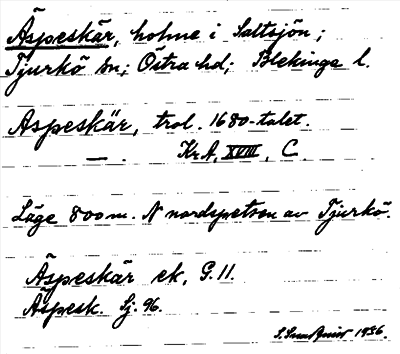 Äspeskär, holme i Saltsjön;
Tjurkö sn; Östra hd; Blekinge l.
Aspeskär, trol. 1680-talet.
— . KrA, XVIII, C.
Läge 800 m. N nordspetsen av Tjurkö.
Äspeskär ek, G. 11.
Äspesk. Sj. 96.
1936.